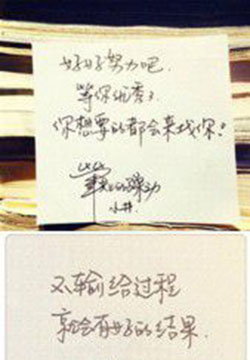 好好努力吧.
等你优秀了
你想要的都会来找你!
小井
不输给过程
就会有好的结果.